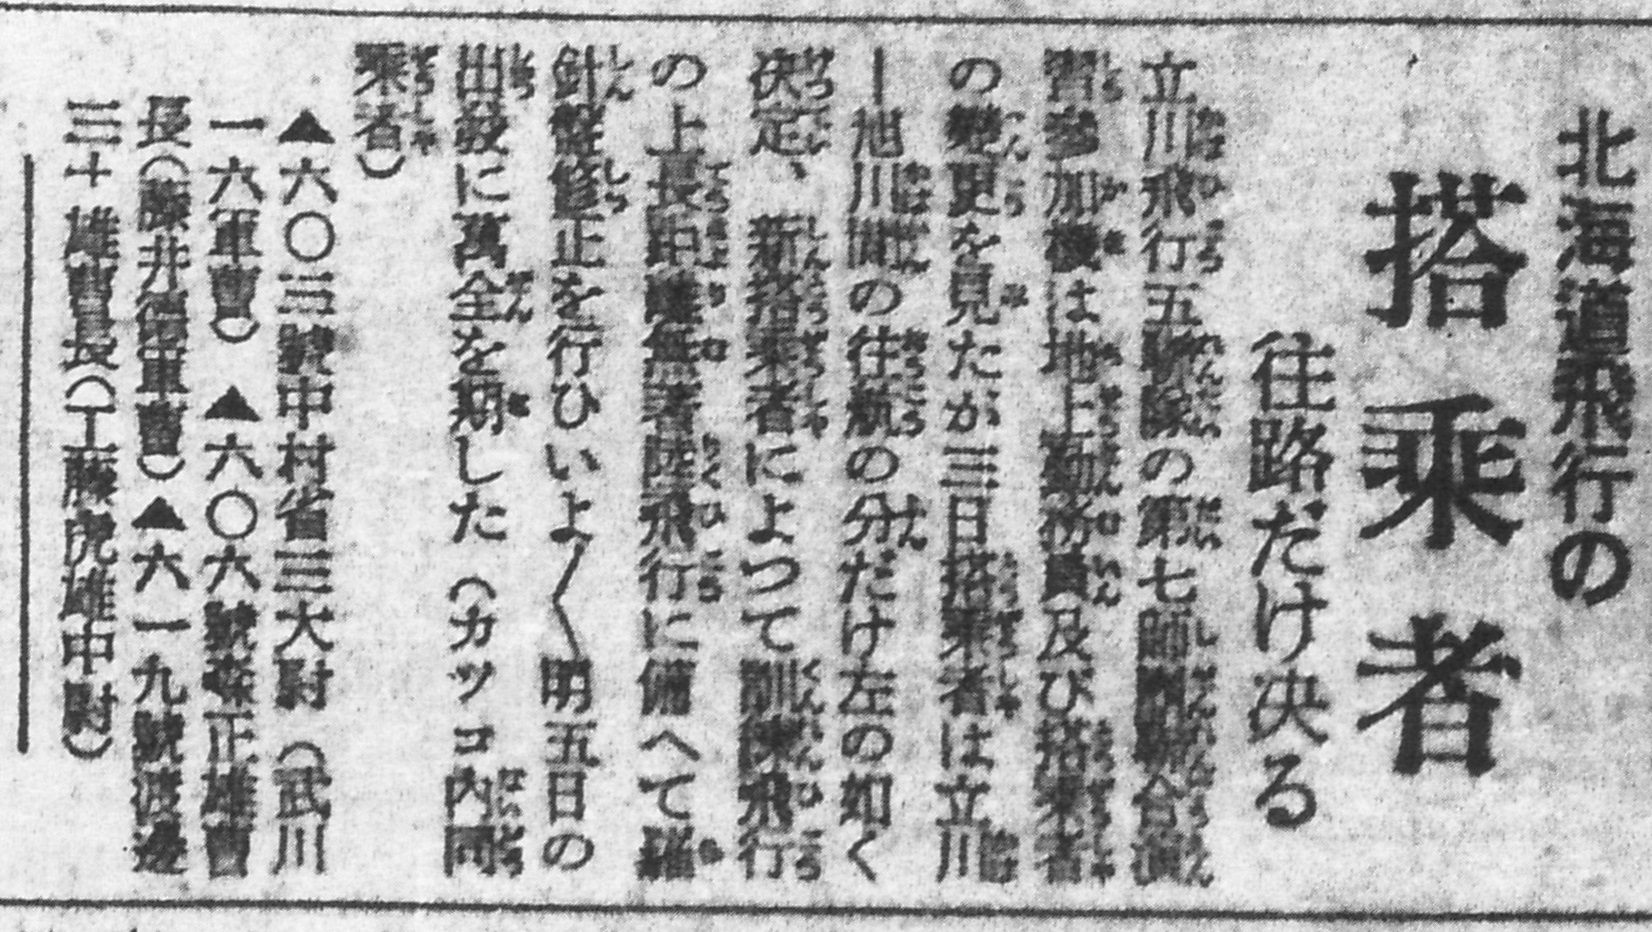 北海道飛行の
搭乘者
往路だけ決る
立川飛行五聯隊の第七師團聯合演
習參加機は地上勤務員及び搭乘者
の變更を見たが三日搭乘者は立川
ー旭川間の往航の分だけ左の如く
決定、新搭乘者によつて訓練飛行
の上長距離無着陸飛行に備へて羅
針盤修正を行ひいよ〳〵明五日の
出發に萬全を期した（カツコ內同
乘者）
▲六〇三號中村省三大尉（武川
一六軍曹）▲六〇六號森正雄曹
長（藤井德軍曹）▲六一九號渡邊
三十雄曹長（工藤虎雄中尉）